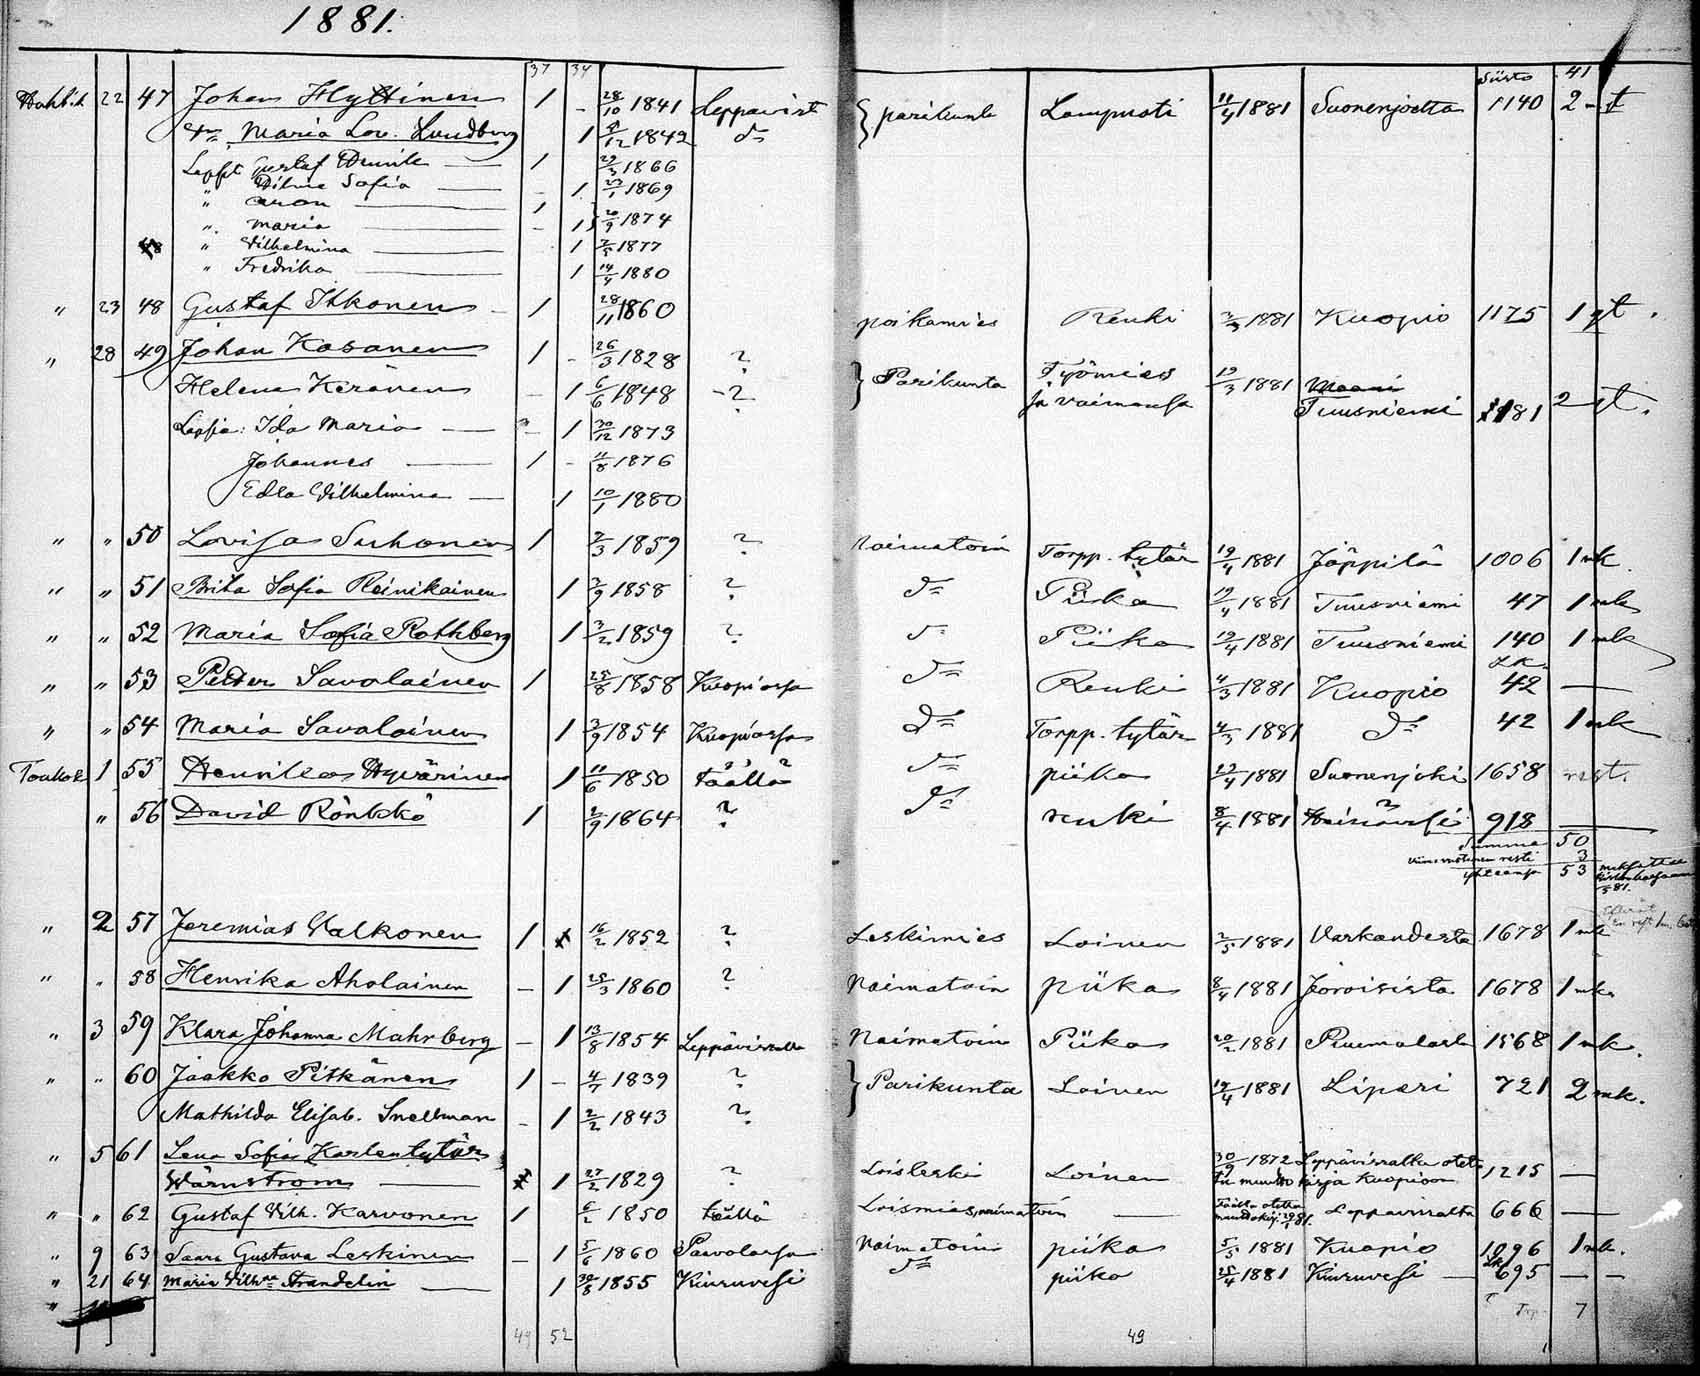 1881.
37 34 Siirto 41
Huhtik. 22 47 Johan Hyttinen 1 - 28/10 1841 Leppävirt } parikunta Lampuoti 11/4 1881 Suonenjoelta 1140 2 -
Maria Lov. Lundberg 1 8/12 1842 d:o
Lapset Gustaf Henrik — 1 29/3 1866
" Vilma Sofia — - 1 23/1 1869
" Aron — 1
" Maria — - 1 20/9 1874
48 " Vilhelmina — 1 2/5 1877
" Fredrika — 1 14/4 1880
" 23 48 Gustaf Itkonen - 1 28/11 1860 poikamies Renki 3/3 1881 Kuopio 1175 1
" 28 49 Johan Kosonen 1 - 26/3 1828 ? } Parikunta Työmies 19/3 1881 Maani
Helena Keränen - 1 6/6 1848 -? ja vaimonsa Tuusniemi 1181 2
Lapsia: Ida Maria — - 1 30/12 1873
Johannes — 1 - 11/8 1876
Edla Vilhelmina — 1 10/1 1880
" " 50 Lovisa Suhonen 1 2/3 1859 ? Naimatoin Torpp. tytär 19/4 1881 Jäppilä 1006 1 mk.
" " 51 Brita Sofia Reinikainen 1 2/9 1858 ? d:o Piika 19/4 1881 Tuusniemi 47 1 mk
" " 52 Maria Sofia Rothberg 1 3/2 1859 ? d:o Piika 19/4 1881 Tuusniemi 140 1 mk
" " 53 Petter Savolainen 1 25/8 1858 Kuopiossa d:o Renki 4/3 1881 Kuopio 42 —
" " 54 Maria Savolainen 1 3/9 1854 Kuopiossa d:o Torpp. tytär 4/3 1881 d:o 42 1 mk
Toukok. 1 55 Henrika Hyvärinen 1 11/6 1850 täällä d:o piika 19/4 1881 Suonenjoki 1658 rest.
" 56 David Rönkkö 1 2/9 1864 ? d:o renki 8/4 1881 Heinävesi 918 —
Summa 50
resti 3
yhteensä 53
" 2 57 Jeremias Valkonen 1 16/2 1852 ? Leskimies Loinen 2/5 1881 Varkaudesta 1678 1 mk
" " 58 Henrika Aholainen - 1 25/3 1860 ? Naimatoin piika 8/4 1881 Joroisista 1678 1 mk.
" 3 59 Klara Johanna Mahrberg - 1 13/8 1854 Leppävirralla Naimatoin Piika 20/2 1881 Puumalasta 1568 1 mk.
" " 60 Jaakko Pitkänen 1 - 4/7 1839 ? } Parikunta Loinen 19/4 1881 Liperi 721 2 mk.
Mathilda Elisab. Snellman - 1 2/2 1843 ?
" 5 61 Lena Sofia Karlentytär
Wärnström — 1 27/2 1829 ? Loisleski Loinen 30/9 1872 Leppävirralta 1215 —
muutto kirja Kuopioon
" " 62 Gustaf Vilh. Karvonen 1 6/2 1850 täällä Loismies, naimatoin — Täältä otettu Leppävirralta 666 —
" 9 63 Saara Gustava Leskinen — 1 5/6 1860 Paavolassa Naimatoin piika 5/5 1881 Kuopio 1096 1 mk.
" 21 64 Maria Vilh:na Arandelin — 1 30/8 1855 Kiuruvesi d:o piika 25/4 1881 Kiuruvesi — 695 — —
49 52 49 7